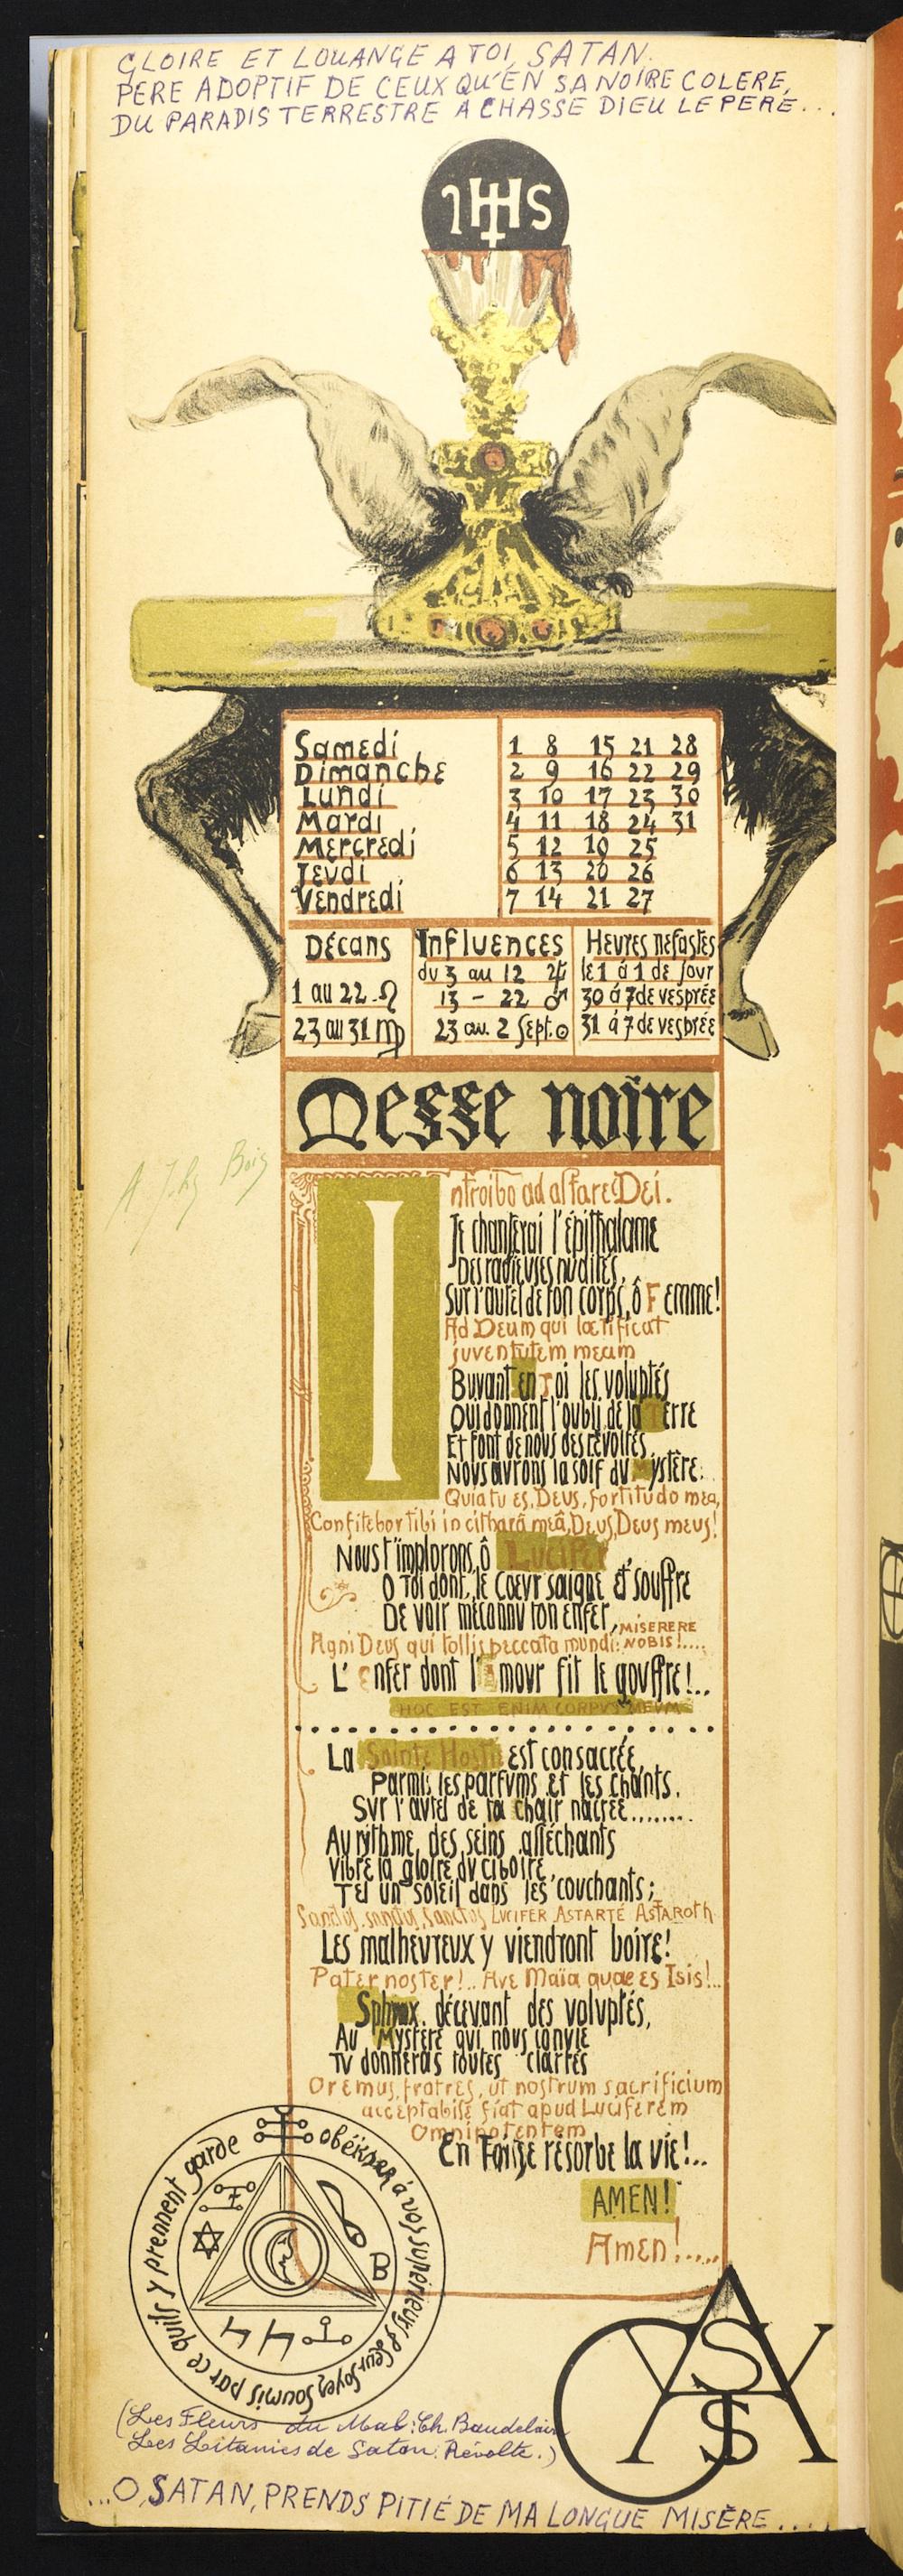 GLOIRE ET LOUANGE A TOI, SATAN.
PERE ADOPTIF DE CEUX QU'EN SA NOIRE COLERE,
DU PARADIS TERRESTRE A CHASSE DIEU LE PERE...
IHS
Samedi 1 8 15 21 28
Dimanche 2 9 16 22 29
Lundi 3 10 17 23 30
Mardi 4 11 18 24 31
Mercredi 5 12 19 25
Jeudi 6 13 20 26
Vendredi 7 14 21 27
Décans Influences Heures néfastes
du 3 au 12 ♃ le 1 à 1 de jour
1 au 22 ♌ 13 - 22 ♂ 30 á 7 de vesprée
23 au 31 ♍ 23 au 2 Sept. ☉ 31 á 7 de vesprée
Messe noire
A Bois
Introibo ad altare Dei.
Je chanterai l'épithalame
Des radieuses nudités,
Sur l'autel de ton corps, ô Femme!
Ad Deum qui lætificat
juventutem meam
Buvant en Toi les voluptés
Qui donnent l'oubli de la Terre
Et font de nous des révoltés,
Nous aurons la soif du Mystère:
Quia tu es, Deus, fortitudo mea,
Confitebor tibi in citharâ meâ, Deus, Deus meus!
Nous t'implorons, ô Lucifer,
O Toi dont le Cœur saigne et souffre
De voir méconnu ton enfer,
MISERERE
Agni Deus qui tollis peccata mundi: NOBIS!....
L'Enfer dont l'Amour fit le gouffre!...
HOC EST ENIM CORPVS MEVM
La Sainte Hostie est consacrée,
Parmi les parfvms et les chants,
Svr l'autel de ta chair nacrée........
Au rythme des seins alléchants
Vibre la gloire dv ciboire,
Tel un soleil dans les couchants;
Sanctus, sanctus, sanctus LVCIFER ASTARTÉ ASTAROTH
Les malhevrevx y viendront boire!
Pater noster!.. Ave Maïa quae es Isis!..
Sphinx décevant des voluptés,
Au Mystère qui nous convie
Tv donneras toutes clartés
Oremus, fratres, ut nostrum sacrificium
acceptabile fiat apud Luciferem
Omnipotentem
En résorbe la vie!...
AMEN!
Amen!.....
obéissez à vos supérieurs & leur soyez soumis par ce qu'ils y prennent garde
B
(Les Fleurs du Mal: Ch. Baudelaire
Les Litanies de Satan: Révolte.)
...O, SATAN, PRENDS PITIÉ DE MA LONGUE MISÈRE....